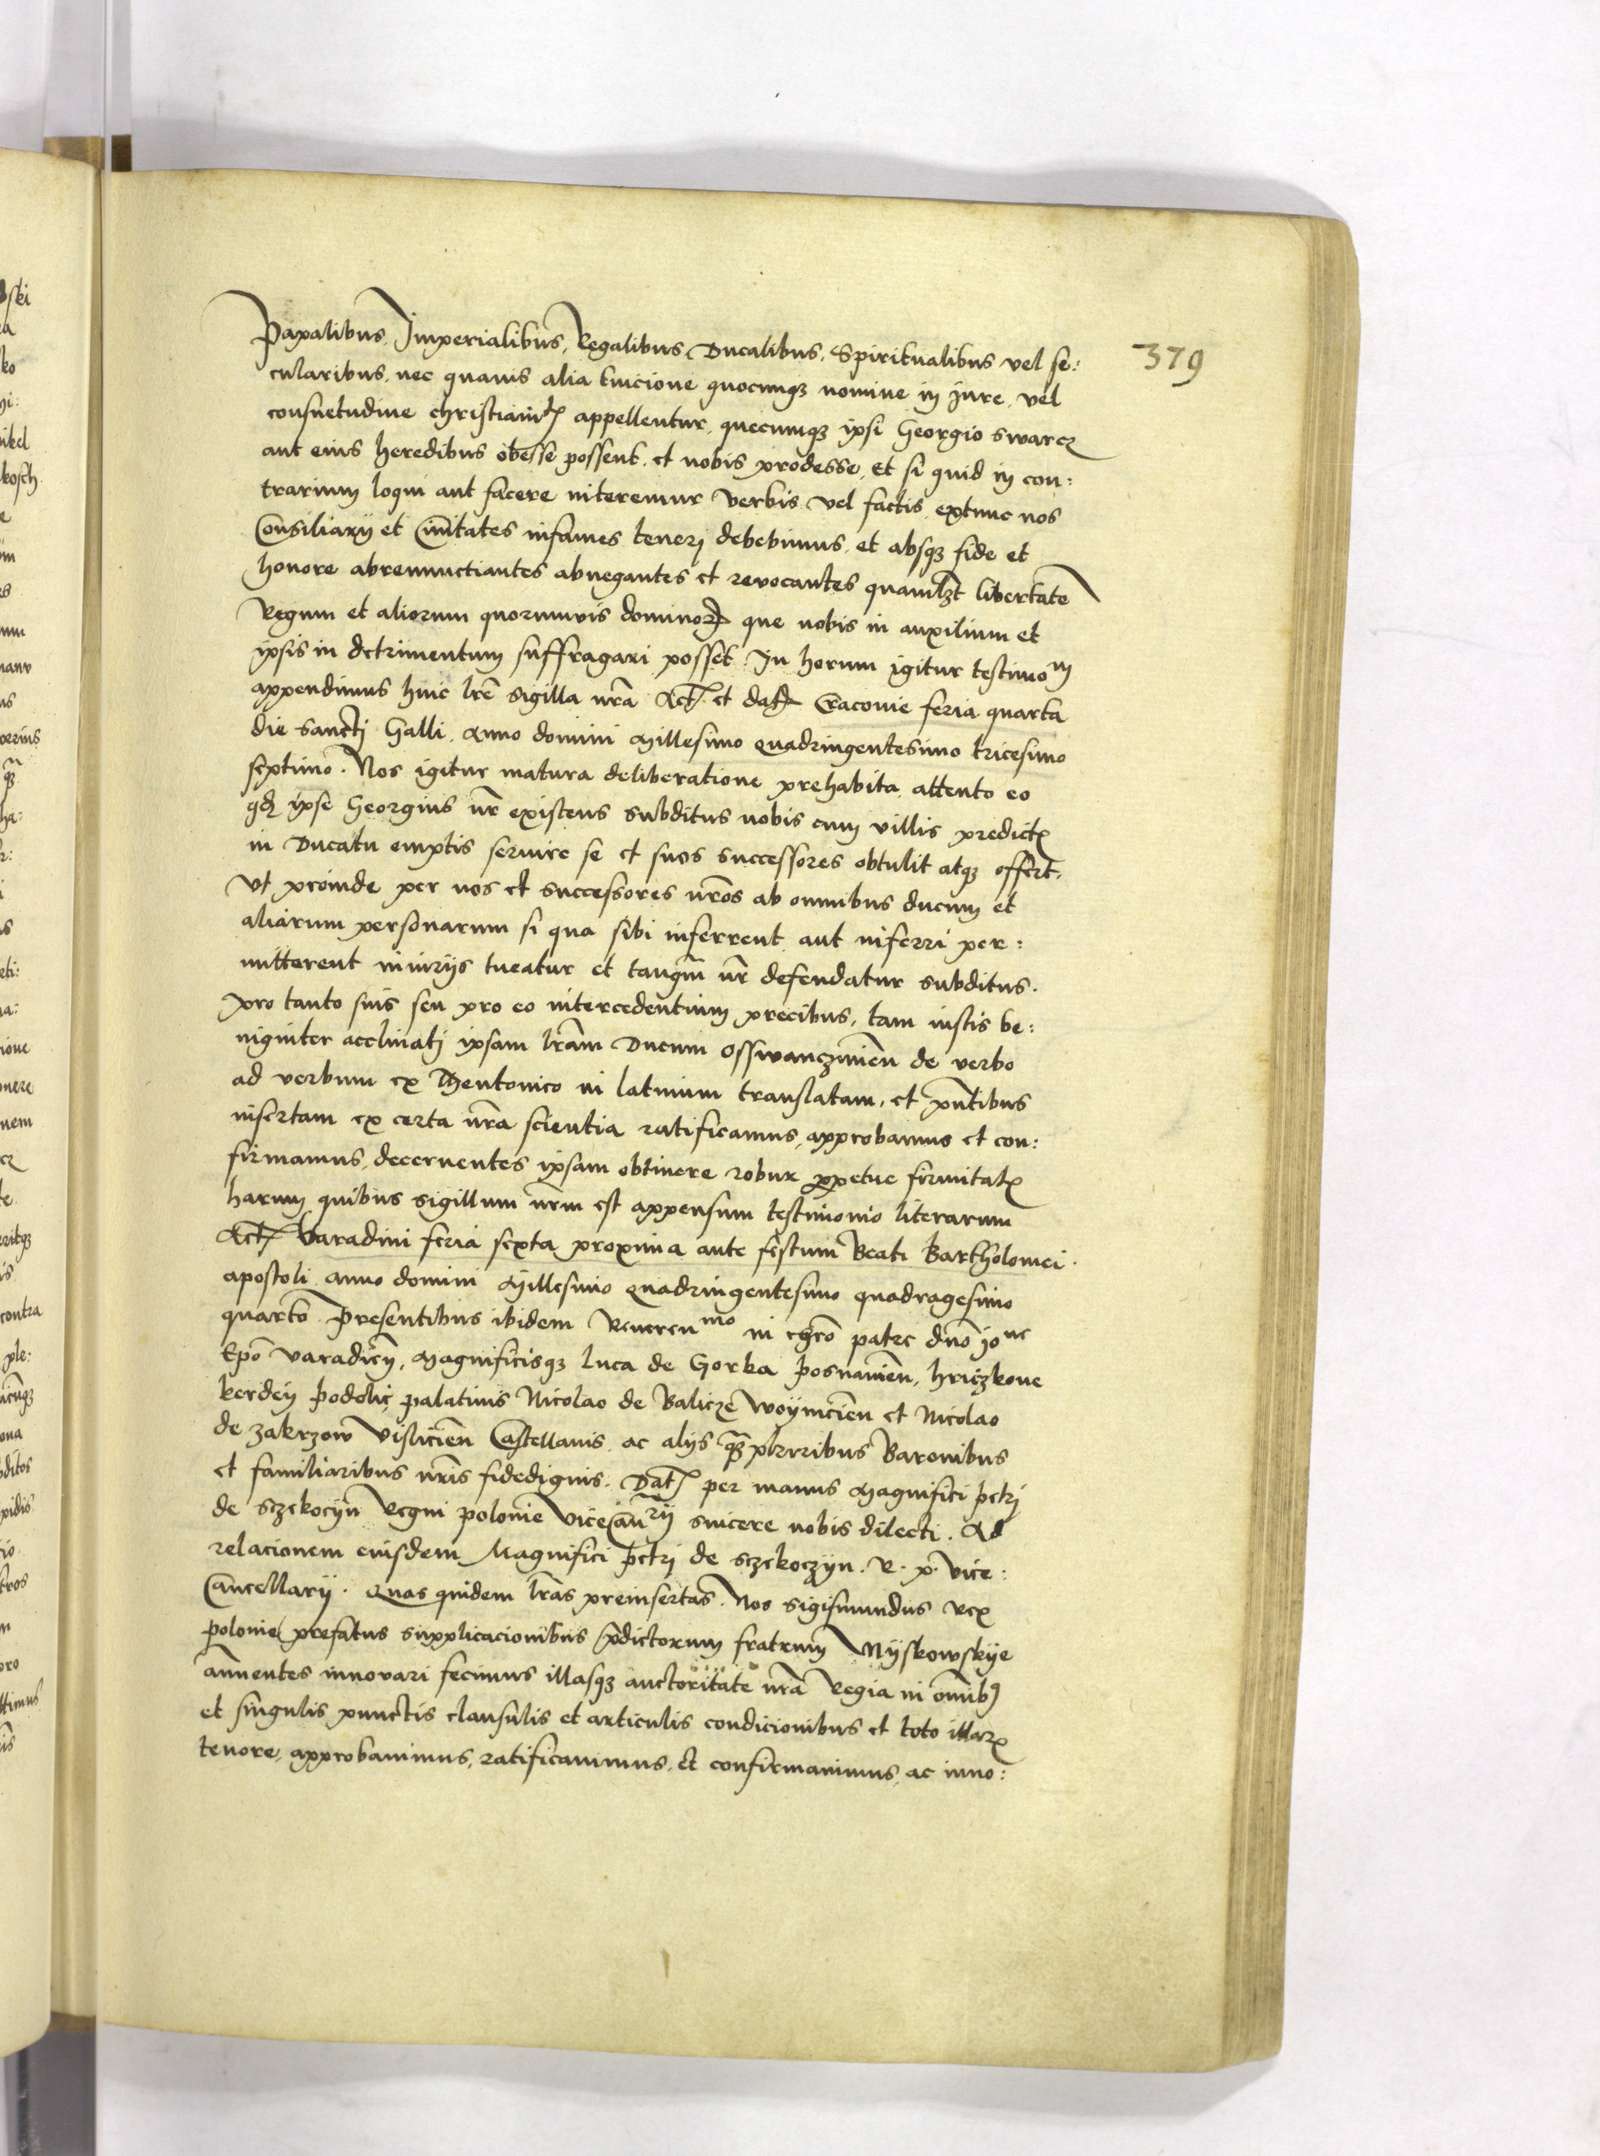 379
Papalibus, Imperialibus, Regalibus, Ducalibus, Spiritualibus vel se:
cularibus, nec quavis alia tuicione quocumq nomine in jure, vel
consuetudine appellentur, quecumq ipsi Georgio swarcz
aut eius heredibus obesse possent, et nobis prodesse, Et si quid in con:
trarium loqui aut facere niteremur verbis vel factis, extunc nos
Consiliarij et Civitates infames teneri debebimus, et absq fide et
honore abrenunctiantes abnegantes et revocantes quamlzt libertate
Regum et aliorum quorumvis dominor que nobis in auxilium et
ipsis in detrimentum suffragari posset. In horum igitur testimom
appendimus huic lre sigilla nra Act et dat Cracovie feria quarta
die sancti Galli, Anno domini Millesimo quadringentesimo tricesimo
septimo. Nos igitur matura deliberatione prehabita, attento eo
qd ipse Georgius nr existens subditus nobis cum villis predict
in Ducatu emptis servire se et suos successores obtulit atq offert,
Ut proinde per nos et successores nros ab omnibus ducum et
aliarum personarum si qua sibi inferrent aut inferri per:
mitterent iniurijs tueatur et tanqm nr defendatur subditus.
Pro tanto suis seu pro eo intercedentium precibus, tam iustis be:
nigniter acclinati ipsam lram Ducum Osswanczimien de verbo
ad verbum ex Theutonico in latinum translatam, et pntibus
insertam ex certa nra scientia ratificamus, approbamus et con:
firmamus, decernentes ipsam obtinere robur ppetue firmitat
harum quibus sigillum nrm est appensum testimonio literarum
Act Varadini feria sexta proxima ante festum Beati Bartholomei.
apostoli anno domini Millesimo quadringentesimo quadragesimo
quarto Presentibus ibidem Reverenmo in chro patre dno Jone
Epo Varadien, Magnificisq luca de Gorka posnanien, hriczkone
kerdey podolie palatinis Nicolao de Balicze Woynicien et Nicolao
de zakrzow Vislicien Castellanis, ac alijs qz plurribus Baronibus
et familiaribus nris fidedignis. Dat per manus Magnifici petri
de sczekocyn Regni polonie viceCanrij sincere nobis dilecti. Ad
relacionem eiusdem Magnifici petri de sczekoczyn. R. p. vice:
Cancellarij. Quas quidem lras preinsertas. Nos sigismundus Rex
polonie prefatus supplicacionibus pdictorum fratrum Myskowskye
annentes innovari fecimus illasq auctoritate nra Regia in omib
et singulis punctis clausulis et articulis condicionibus et toto illar
tenore, approbavimus, ratificavimus, et confirmavimus, ac inno: